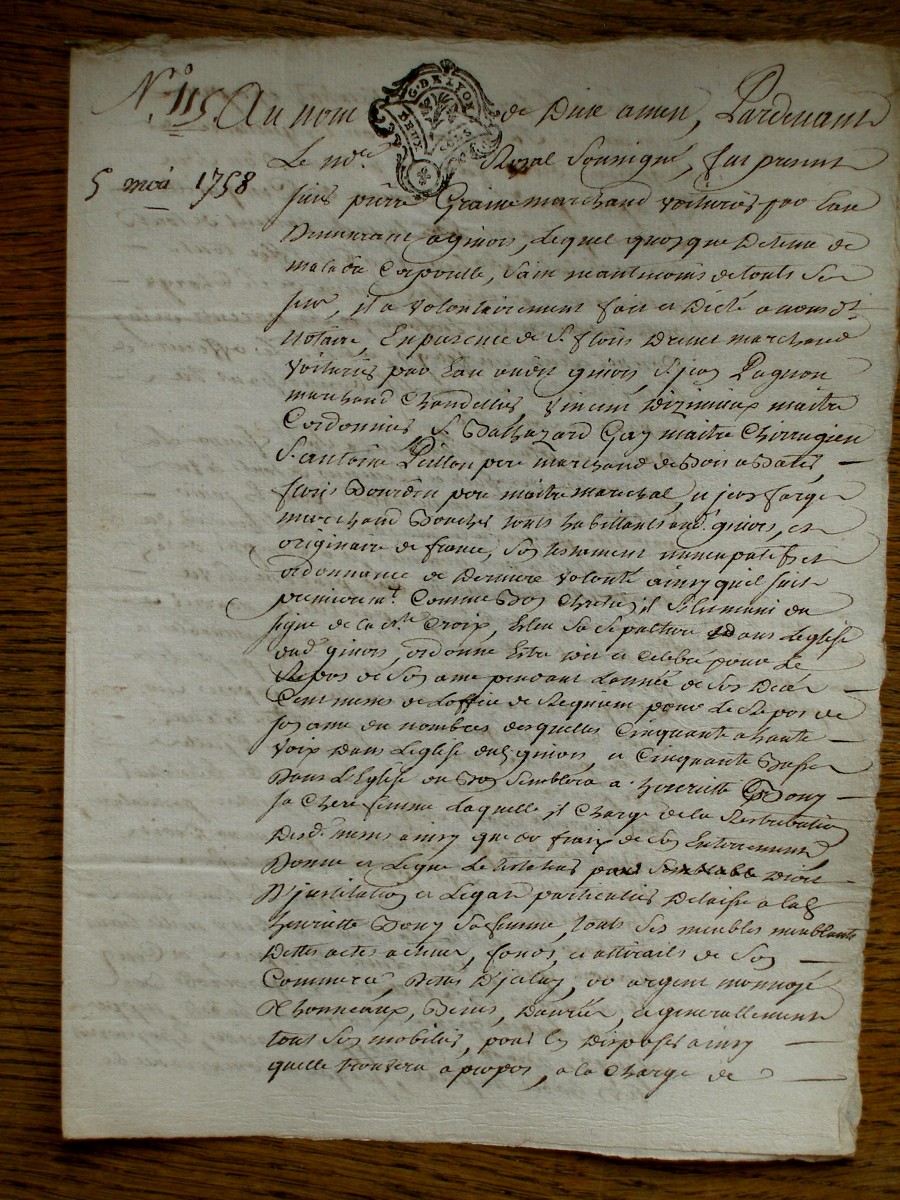 N.° 115. Au nom de Dieu amen, Pardevant
G. DE LYON
DEUX SOLS
Le no.re Royal Soussigné, fut present
5 mai 1758
sieur pierre Graine marchand voiturier par Eau
Demeurant a givors, Lequel quoique Detenu de
maladie Corporelle, Sain neantmoins de touts Ses
sens, il a volontairement fait et Dicté a nous d.t
Notaire, En presence de S.r fleuris Drevet marchand
voiturier par Eau aud.t givors, S.r jean Pagnon
marchand Chandellier, vincent maitre
Cordonnier S.r Balthazard Gay maitre Chirurgien
S. antoine Peillon pere marchand de Bois a Batea
fleuris Bourdin pere maitre marechal, et jean farge
marchand Boucher touts habittants aud. givors, et
originaire de france, Son testament nuncupatif et
ordonnance de Derniere volonté ainsy quil suit
premierem.t Comme Bon Chretien il Sest muni du
signe de la s.te Croix, Esleu Sa Sepulture Dans L'eglise
dud. givors, ordonne Estre Dit et Celebré pour Le
Repos de Son ame pendant Lannée de Son Decés
Cent messes de L'office de Requiem pour Le Repos de
son ame du nombres desquelles Cinquante a haute
voix Dans L'eglise dud. givors, et Cinquante Basse
Dans L'Eglise ou Bon Semblera a henriette Bouy
sa Chere femme Laquelle il Charge de la Restribution
Desd. messes ainsy que du fraix de Son Enterrement,
Donne et Legue Le testateur par Semblable Droit
D'institution et Legat particulier Delaisse a lad.
henriette Bouy Sa femme, touts Ses meubles meublants
Dettes actives, fonds, et attirails de Son
Commerce, or argent monnoyé
Thonneaux, Benes, Danrée, et generallement
tout Son mobilier, pour En Disposer ainsy
quelle trouvera a propos, a la Charge de